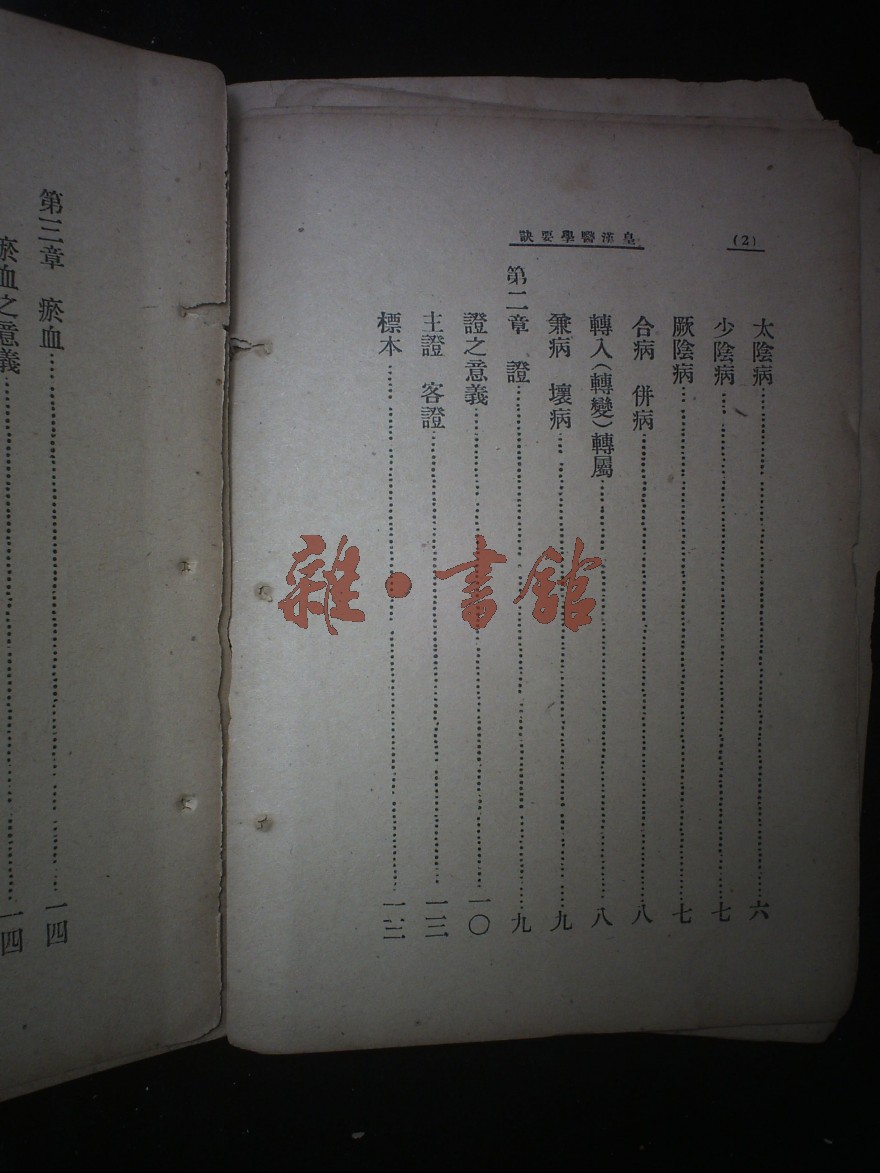 (2)
皇漢醫學要訣
太陰病……六
少陰病……七
厥陰病……七
合病 併病……八
轉入(轉變)轉屬……八
兼病 壞病……九
第二章 證……九
證之意義……一〇
主證 客證……一三
標本……一三
第三章 瘀血……一四
瘀血之意義……一四
雜·書館